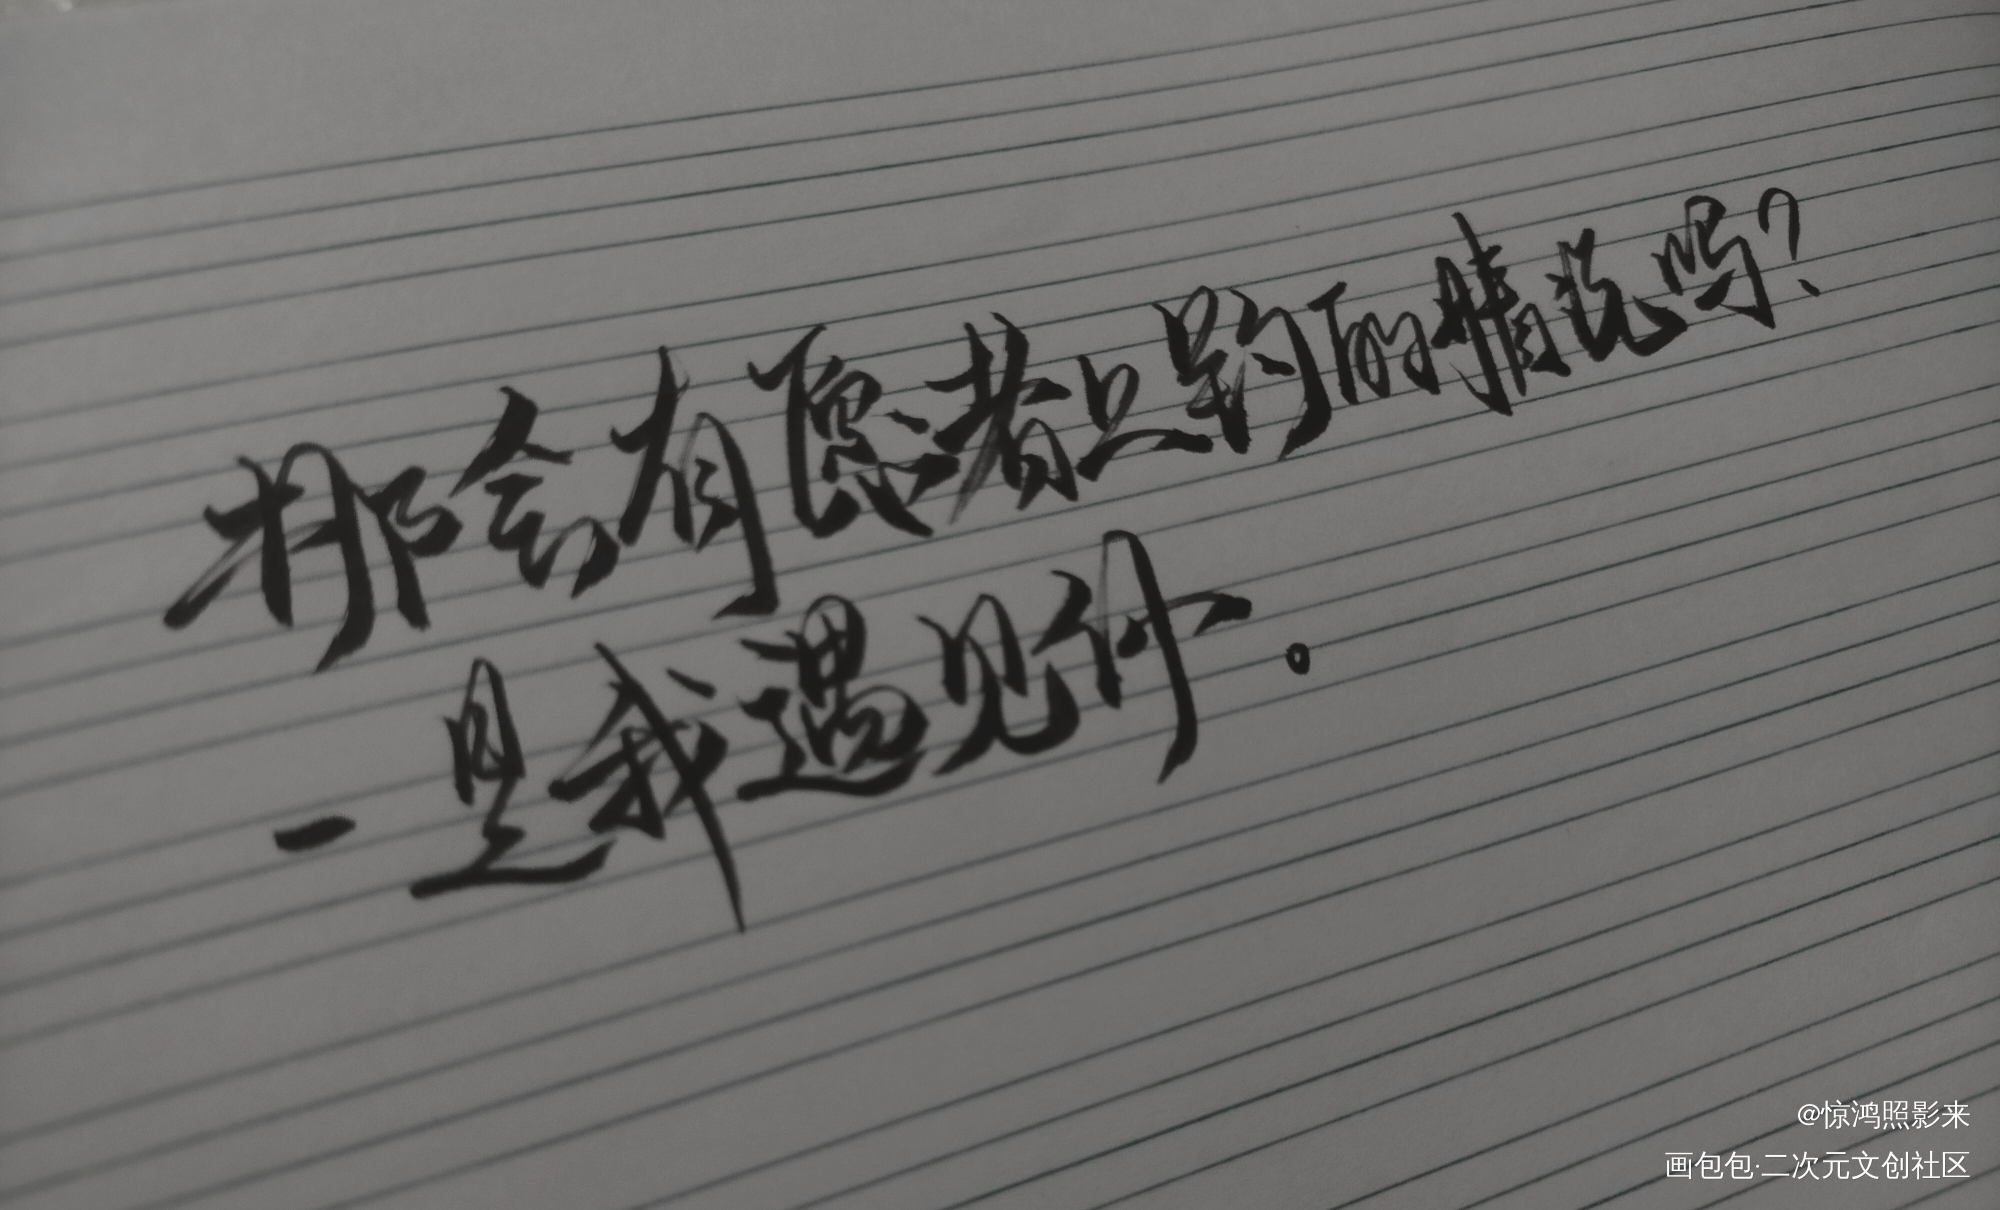 那会有愿者上钩的情况吗?
-是我遇见你。
@惊鸿照影来
画包包·二次元文创社区